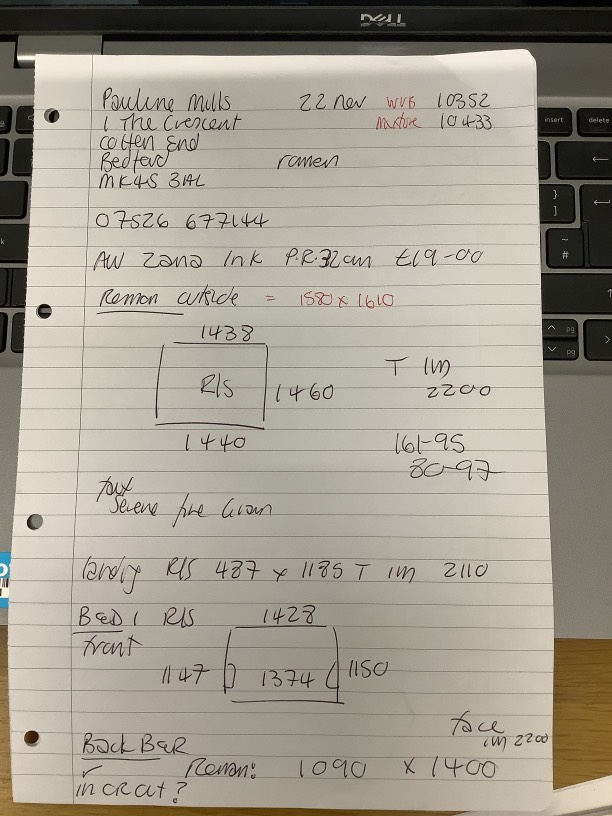 DELL
Pauline Mills 22 nov WVB 10352
1 The Crescent 10433
Cotten End
Bedford roman
MK45 3AL
07526 677144
AW Zana Ink P.R. 32cm £19-00
Roman outside = 1580 x 1610
1438
R/S 1460
1440
T 1m
2200
161-95
80-97
faux
Serene fire Cream
landing R/S 487 x 1185 T 1m 2110
BED 1 R/S 1428
front
1147 1374 1150
face
1m 2200
Back BED
Roman: 1090 x 1400
insert
delete
}
]
~
#
pg
pg